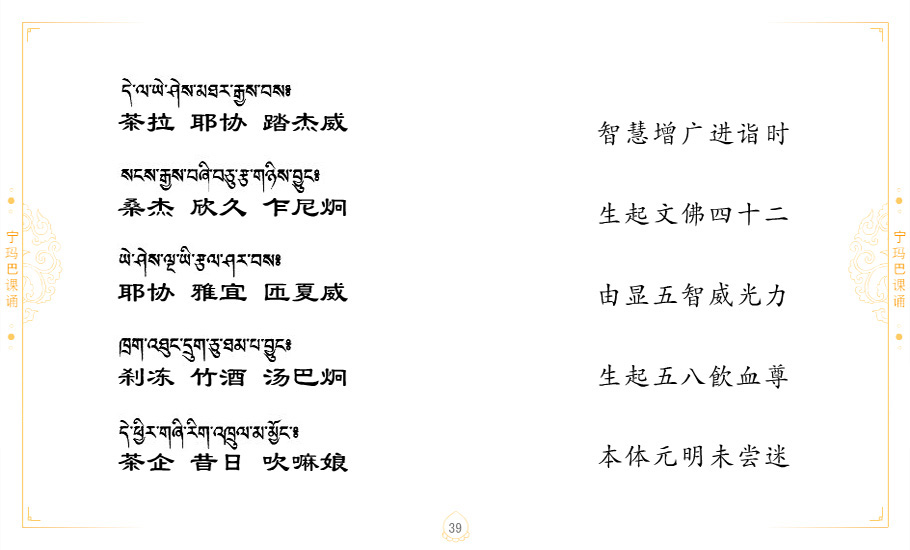 དེ་ལ་ཡེ་ཤེས་མཐར་རྒྱས་བས༔
茶拉 耶协 踏杰威
智慧增广进诣时
སངས་རྒྱས་བཞི་བཅུ་རྩ་གཉིས་བྱུང༔
桑杰 欣久 乍尼炯
生起文佛四十二
ཡེ་ཤེས་ལྔ་ཡི་རྩལ་ཤར་བས༔
耶协 雅宜 匝夏威
由显五智威光力
ཁྲག་འཐུང་དྲུག་ཅུ་ཐམ་པ་བྱུང༔
刹冻 竹酒 汤巴炯
生起五八飲血尊
དེ་ཕྱིར་གཞི་རིག་འཁྲུལ་མ་མྱོང༔
茶企 昔日 吹嘛娘
本体元明未尝迷
宁玛巴课诵
宁玛巴课诵
39